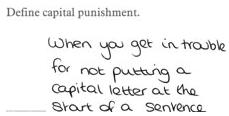 Define capital punishment.
When you get in trouble
for not putting a
capital letter at the
start of a sentence